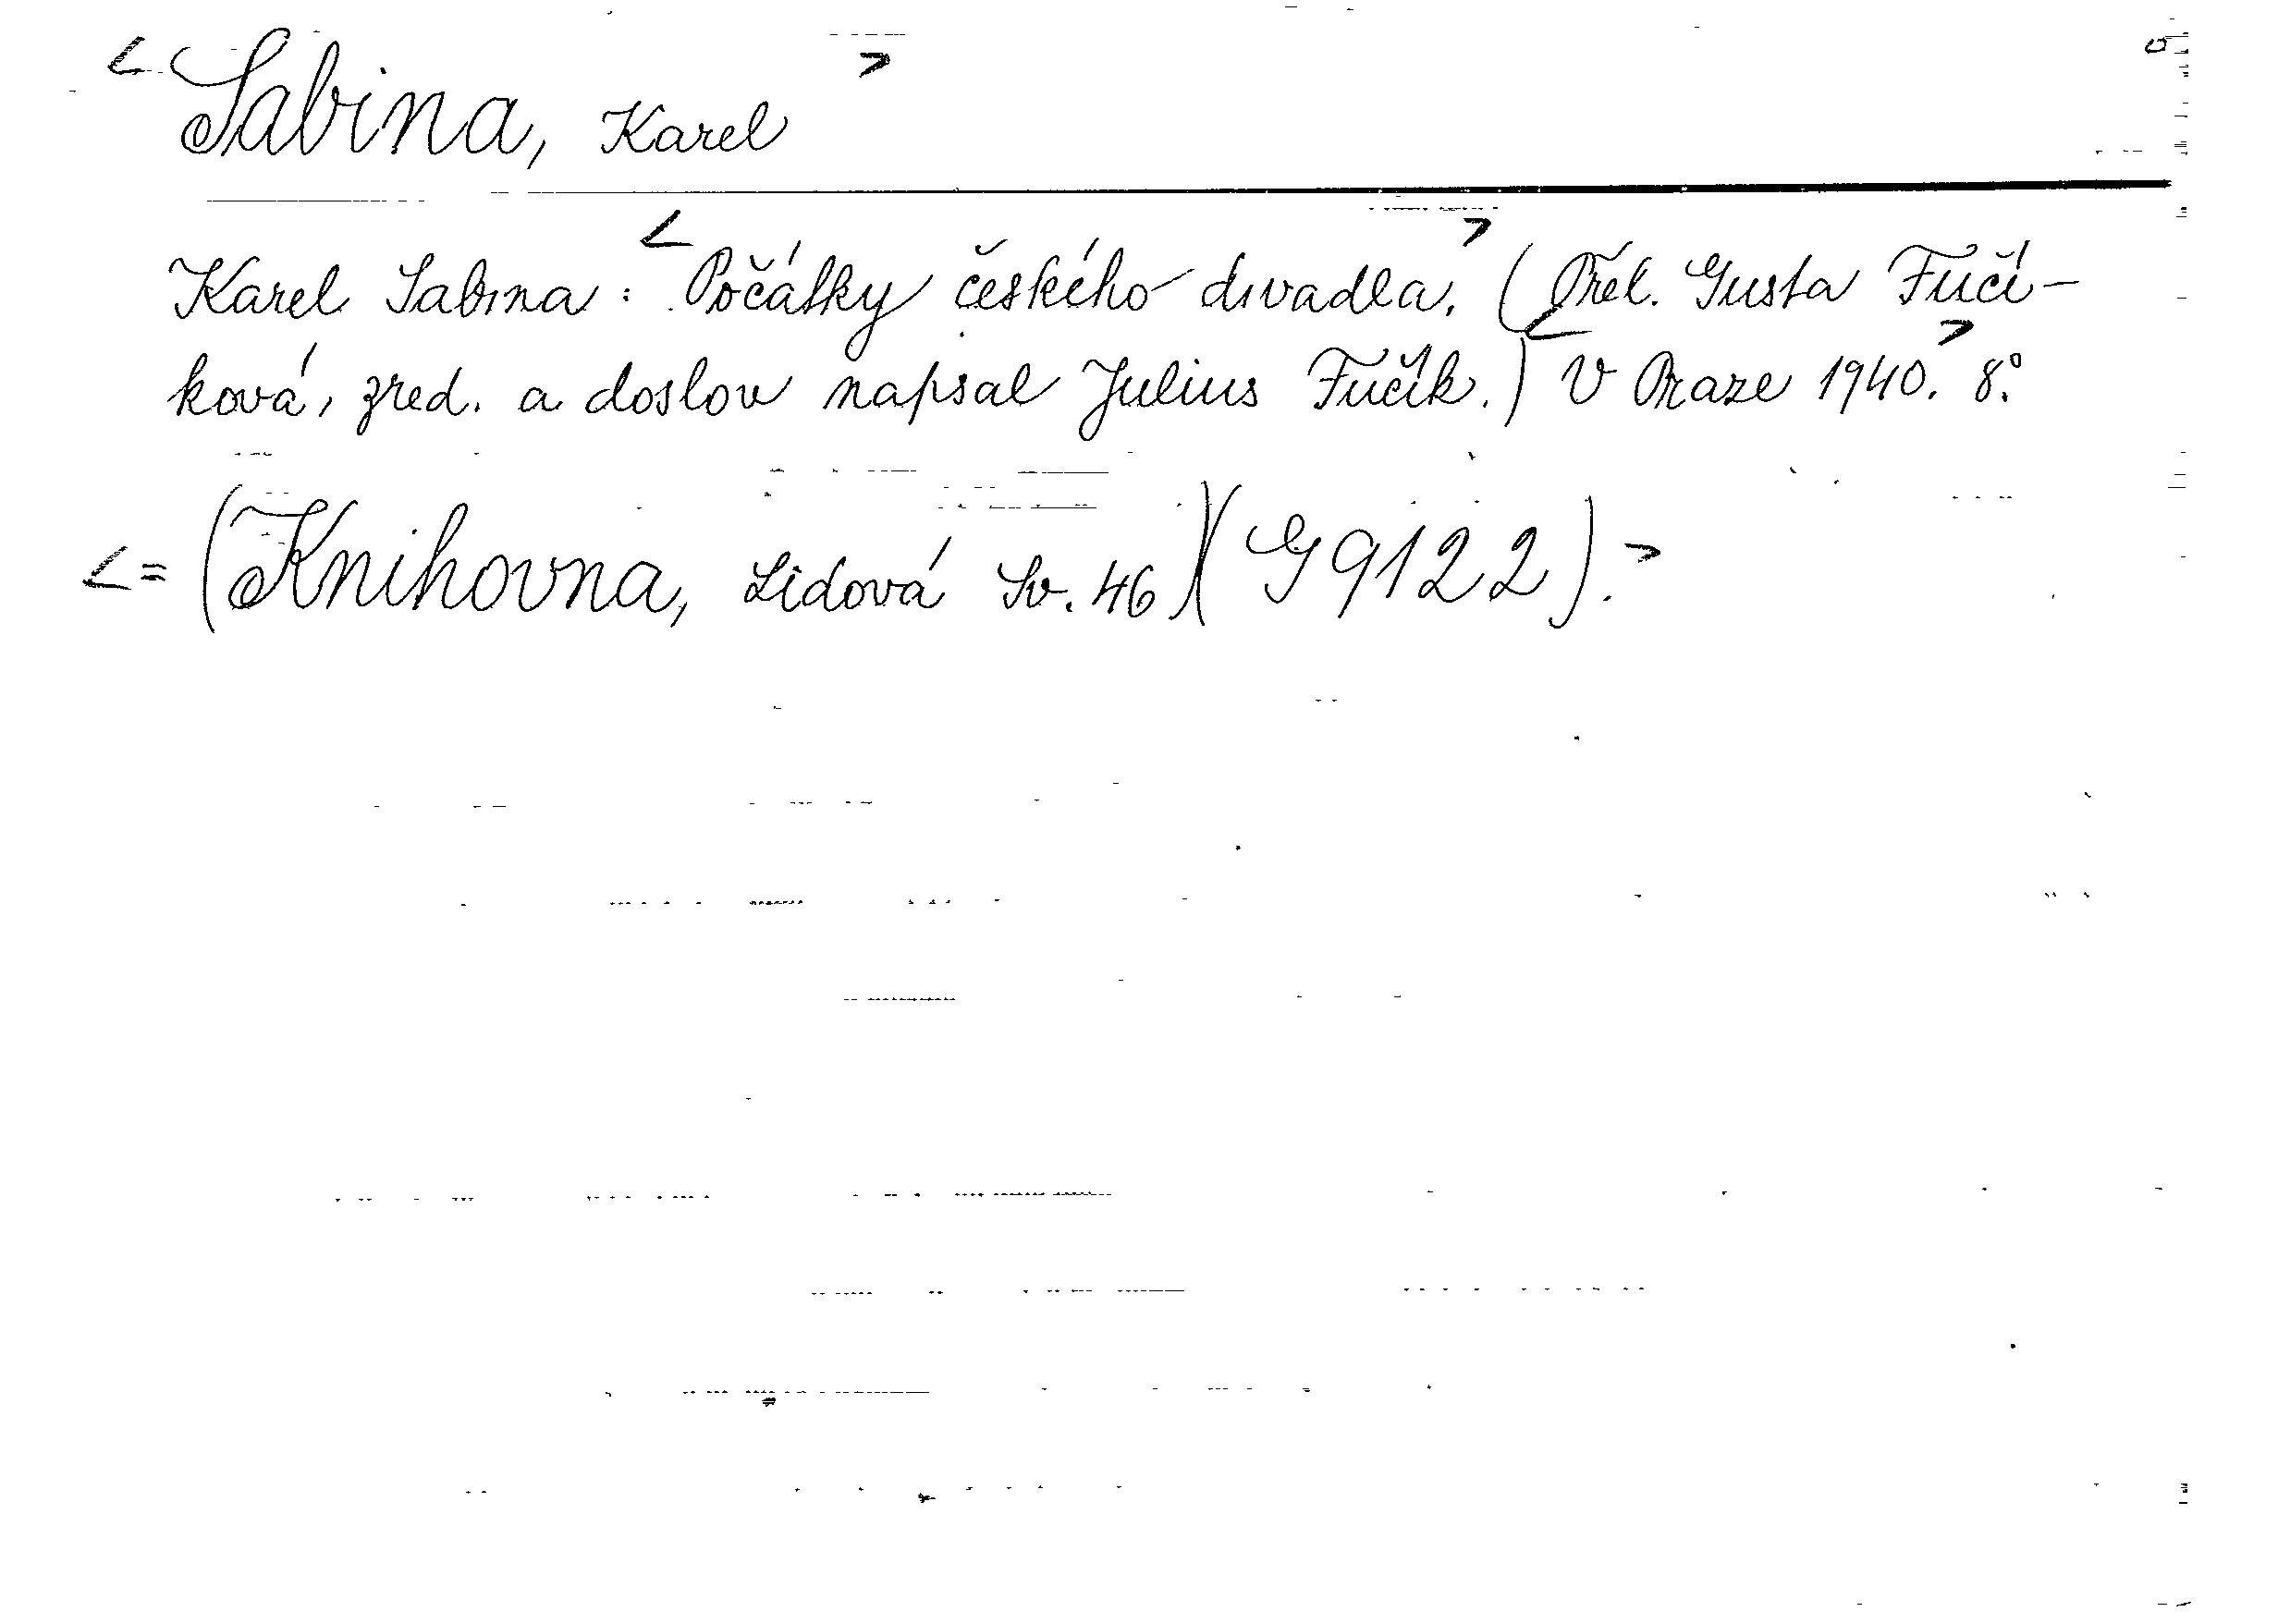 < Sabina, Karel >
Karel Sabina: < Počátky českého divadla. > (Přel. Gusta Fučí-
ková, zred. a doslov napsal Julius Fučík.) < V Praze 1940. > 8°.
< = (Knihovna, Lidová Sv. 46) (G 9122). >